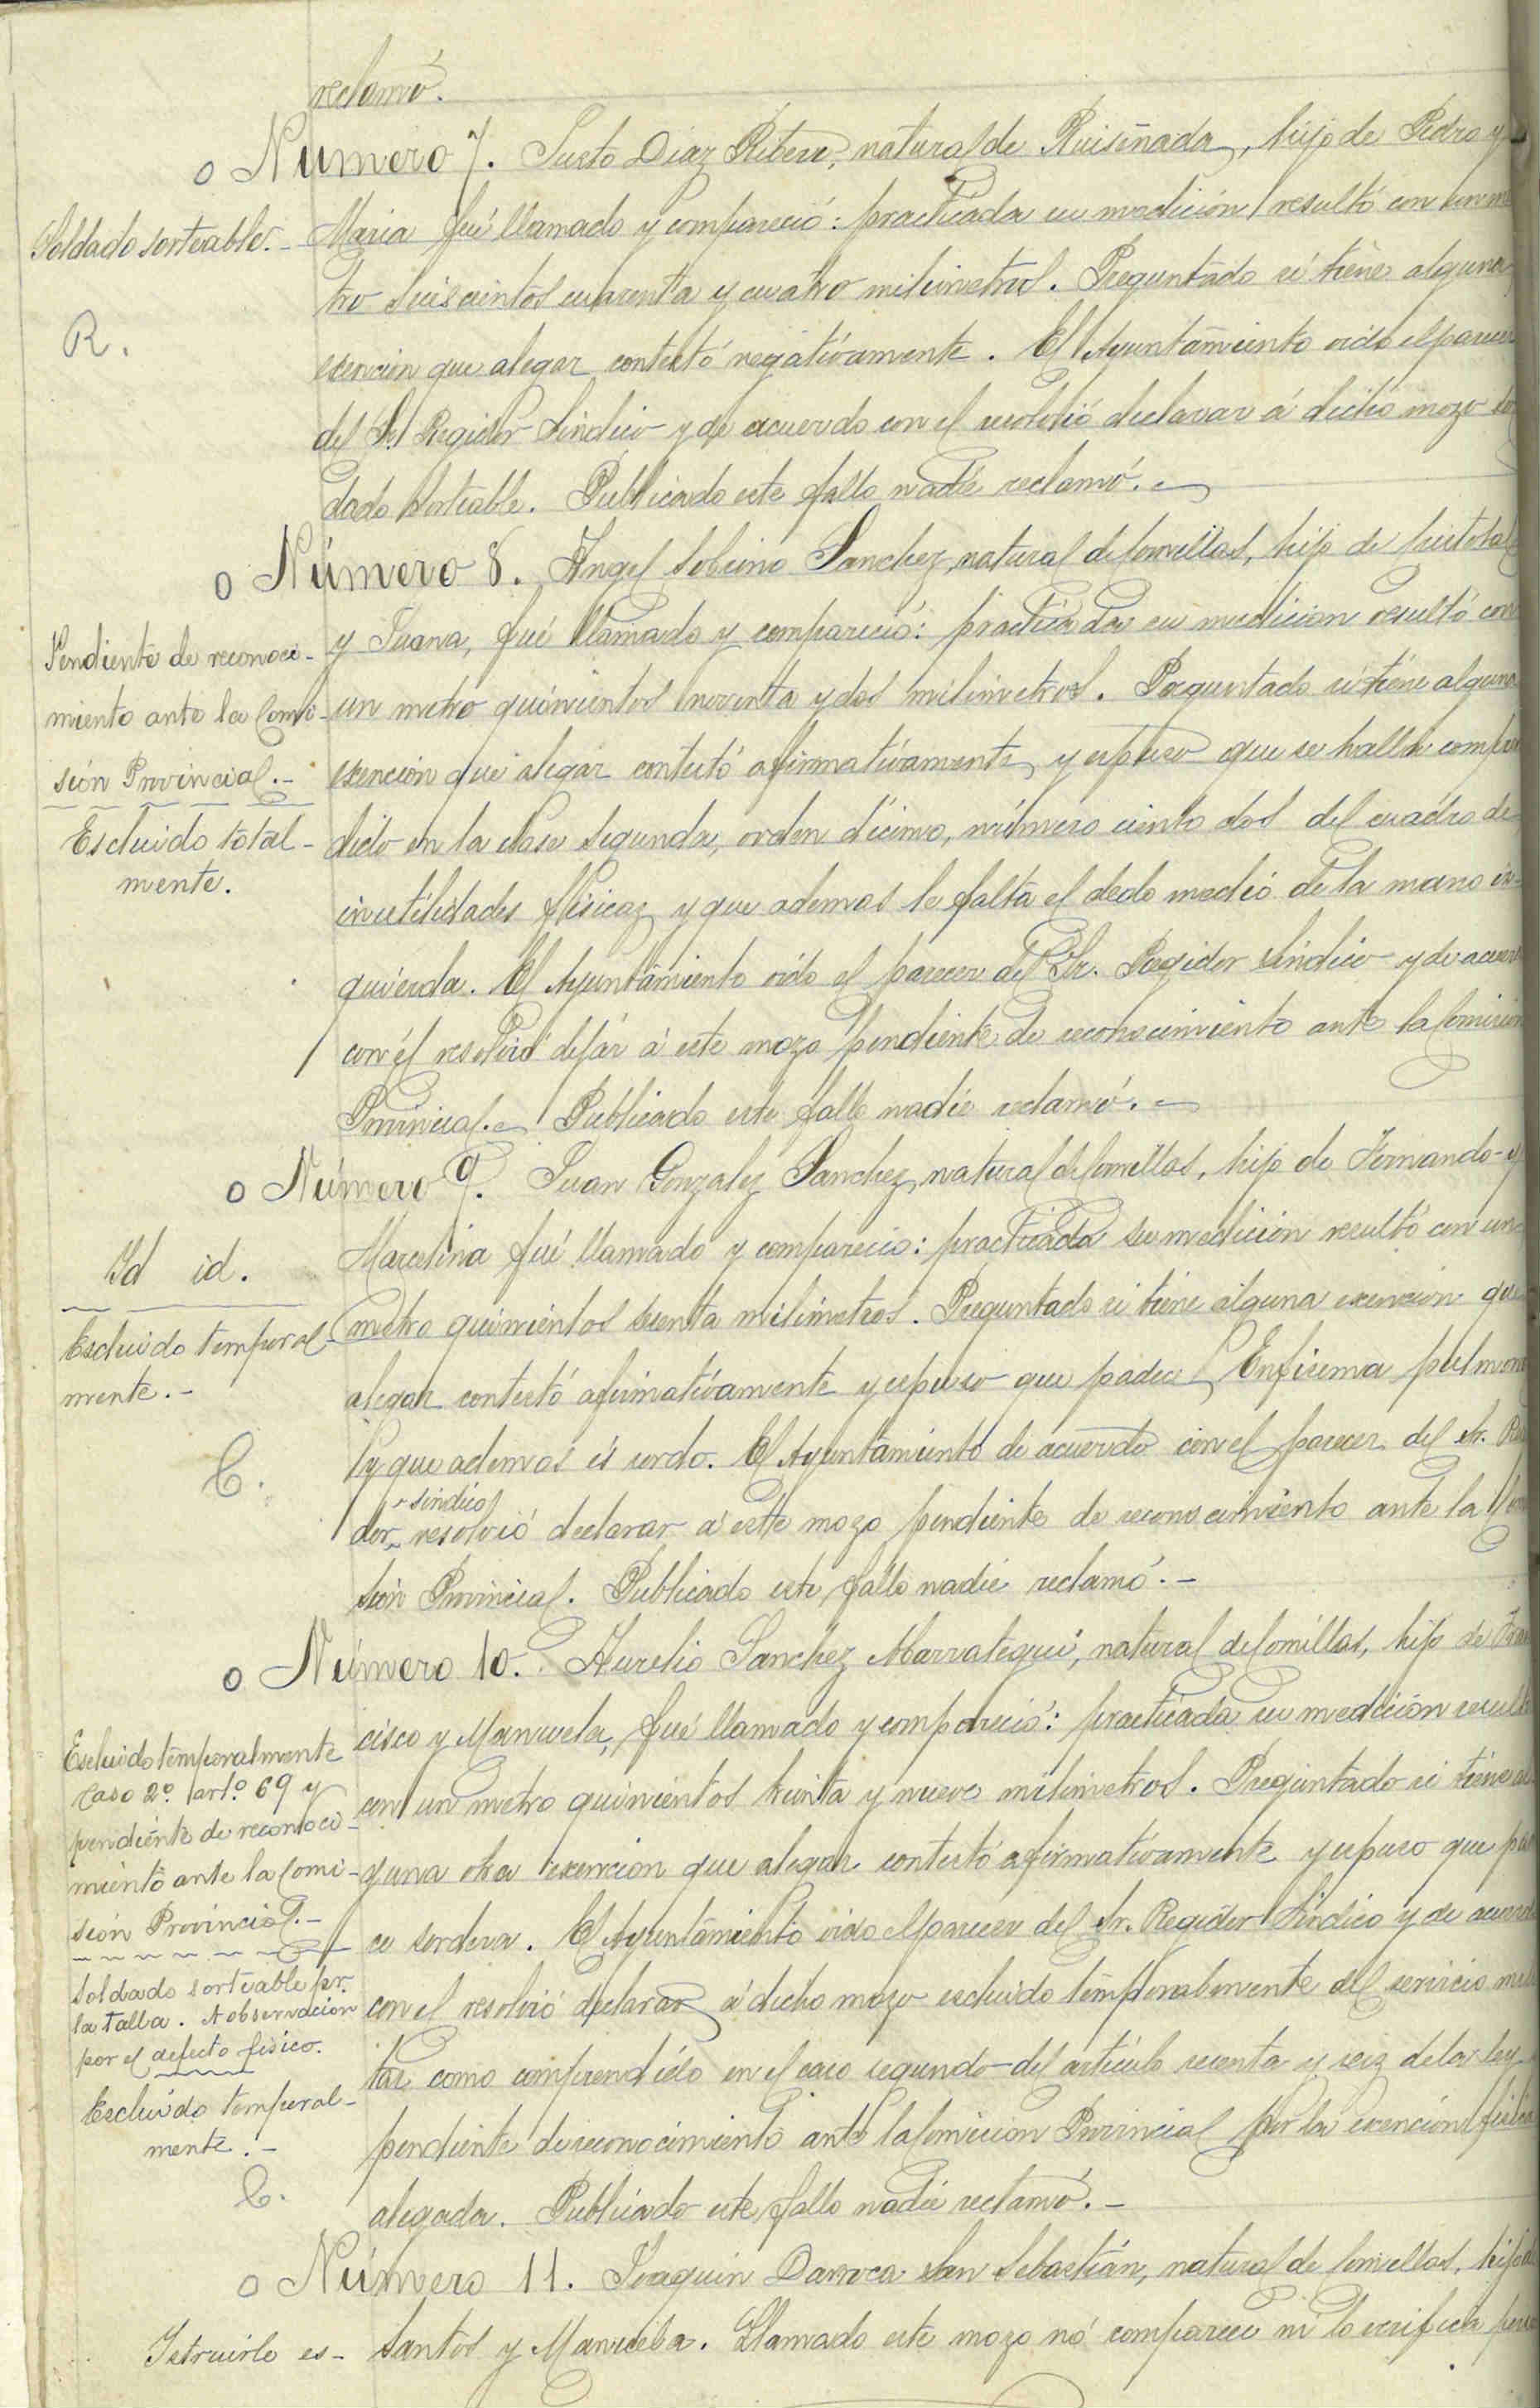 reclamó.
o Número 7. Justo Diaz Ribero, natural de Ruiseñada, hijo de Pedro y
Soldado sorteable.-
Maria fué llamado y compareció: practicada su medición resultó con un me
R.
tro seiscientos cuarenta y cuatro milimetros. Preguntado si tiene alguna
exencion que alegar contestó negativamente. El Ayuntamiento oido el parecer
del Sr. Regidor Síndico y de acuerdo con el resolvió declarar á dicho mozo sol
dado sorteable. Publicado este fallo nadie reclamó.-
o Número 8. Angel Sobrino Sanchez, natural de Comillas, hijo de
Pendiente de reconoci-
miento ante la Comi-
sión Provincial.-
Escluido total-
mente.
y Juana, fué llamado y compareció: practicada su medicion resultó con
un metro quinientos noventa y dos milimetros. Preguntado si tiene alguna
exención que alegar contestó afirmativamente y espuso que se halla compren
dido en la clase segunda, orden décimo, número ciento dos del cuadro de
inutilidades fisicas y que ademas le falta el dedo medio de la mano iz-
quierda. El Ayuntamiento oido el parecer del Sr. Regidor Síndico y de acuer
con él resolvió dejar á este mozo pendiente de reconocimiento ante la Comision
Provincial.- Publicado este fallo nadie reclamó.-
o Número 9. Juan Gonzalez Sanchez, natural de Comillas, hijo de Fernando y
Id id.
Escluido temporal-
mente.-
C.
Marcelina fué llamado y compareció: practicada su medición resultó con un
metro quinientos sesenta milimetros. Preguntado si tiene alguna exencion que
alegar contestó afirmativamente y espuso que padece Enfisema pulmona
y que ademas es sordo. El Ayuntamiento de acuerdo con el parecer del Sr. Regi
dor síndico resolvió declarar á este mozo pendiente de reconocimiento ante la Comi
sión Provincial. Publicado este fallo nadie reclamó.-
o Número 10. Aurelio Sanchez Marrategui, natural de Comillas, hijo de Fran
Escluido temporalmente
caso 2º artº 69 y
pendiente de reconoci-
miento ante la Comi-
sión Provincial.-
Soldado sorteable pr.
la talla. A observacion
por el defecto fisico.
Escluido temporal-
mente.-
C.
cisco y Manuela, fué llamado y compareció: practicada su medición resultó
con un metro quinientos treinta y nueve milimetros. Preguntado si tiene al
guna otra exencion que alegar contestó afirmativamente y espuso que pade
ce sordera. El Ayuntamiento oido el parecer del Sr. Regidor Síndico y de acuerdo
con el resolvió declarar á dicho mozo escluido temporalmente del servicio mili
tar como comprendido en el caso segundo del artículo sesenta y seis de la ley
pendiente de reconocimiento ante la Comision Provincial por la exención fisica
alegada. Publicado este fallo nadie reclamó.-
o Número 11. Joaquin Darroca San Sebastián, natural de Comillas, hijo de
Istruirle es-
Santos y Manuela. Llamado este mozo nó comparece ni lo verifica perso